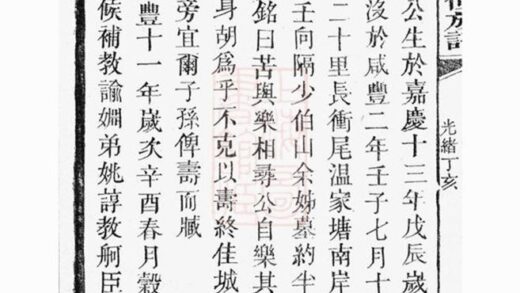 公生於嘉慶十三年戊辰歲
沒於咸豐二年壬子七月十
二十里長衝尾溫家塘南岸
壬向隔少伯山余姊墓約半
銘曰苦與樂相尋公自樂其
身胡爲乎不克以壽終佳城
旁宜爾子孫俾壽而臧
豐十一年歲次辛酉春月穀
候補教諭姻弟姚諄教舸臣
光緒丁亥